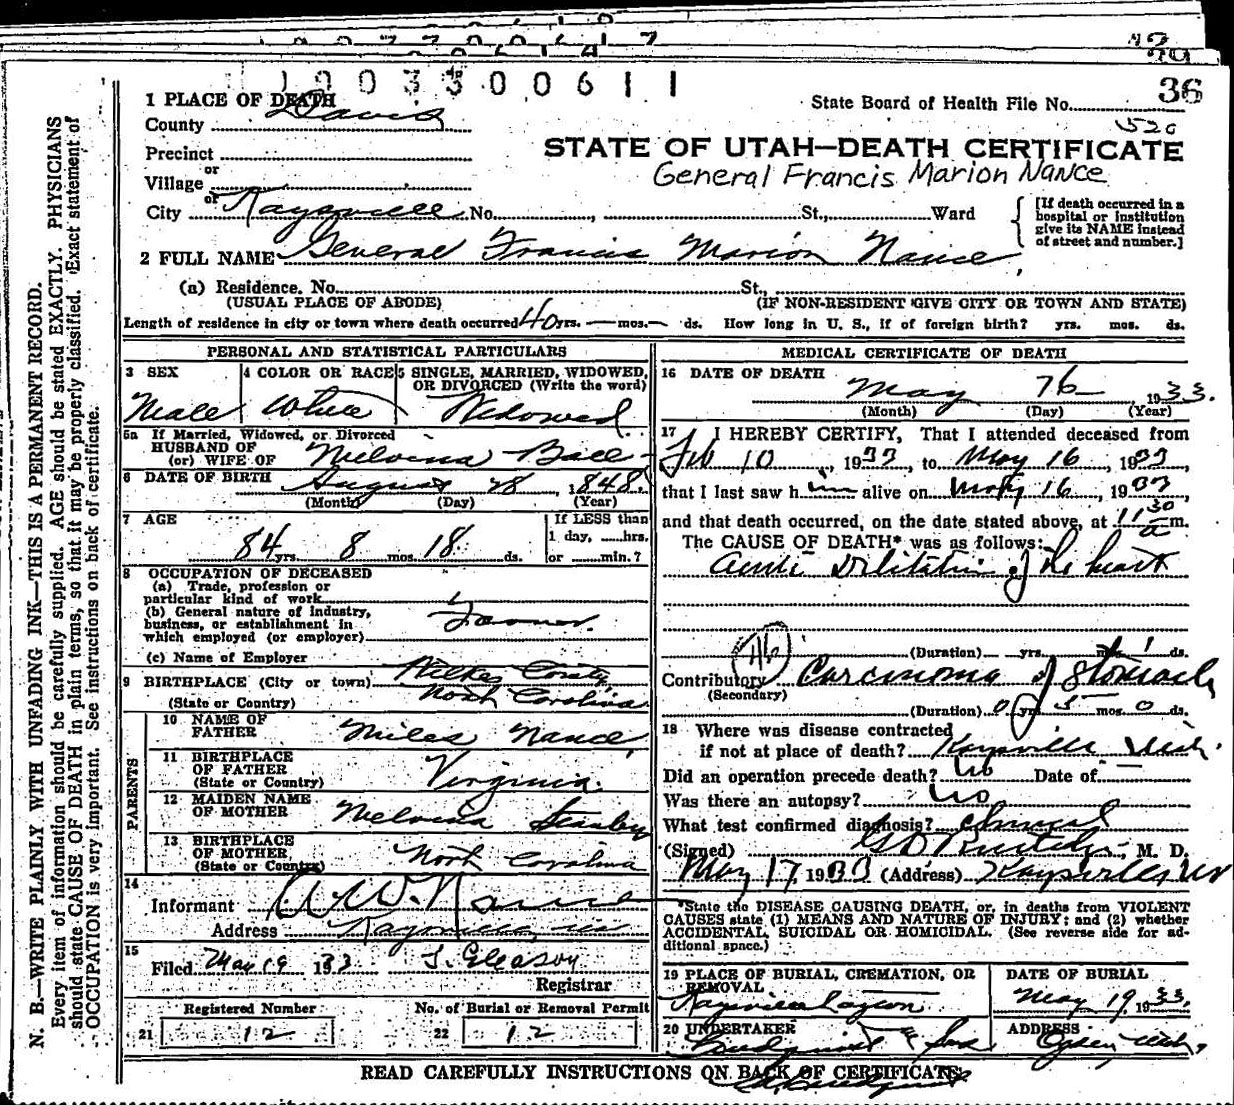 1 9 0 3 3 0 0 6 1 1
36
1 PLACE OF DEATH
State Board of Health File No.
County Davis
520
Precinct
STATE OF UTAH—DEATH CERTIFICATE
or
Village
General Francis Marion Nance
or
City Kaysville No. , St., Ward
[If death occurred in a hospital or institution give its NAME instead of street and number.]
2 FULL NAME General Francis Marion Nance
(a) Residence. No. St.,
(USUAL PLACE OF ABODE) (IF NON-RESIDENT GIVE CITY OR TOWN AND STATE)
Length of residence in city or town where death occurred 40 yrs. — mos. — ds. How long in U. S., if of foreign birth? yrs. mos. ds.
N. B.—WRITE PLAINLY WITH UNFADING INK—THIS IS A PERMANENT RECORD.
Every item of information should be carefully supplied. AGE should be stated EXACTLY. PHYSICIANS
should state CAUSE OF DEATH in plain terms, so that it may be properly classified. Exact statement of
OCCUPATION is very important. See instructions on back of certificate.
PERSONAL AND STATISTICAL PARTICULARS
3 SEX
Male
4 COLOR OR RACE
White
5 SINGLE, MARRIED, WIDOWED,
OR DIVORCED (Write the word)
Widowed
5a If Married, Widowed, or Divorced
HUSBAND OF
(or) WIFE OF Melvina
6 DATE OF BIRTH August 28, 1848
(Month) (Day) (Year)
7 AGE
84 yrs. 8 mos. 18 ds.
If LESS than
1 day, hrs.
or min.?
8 OCCUPATION OF DECEASED
(a) Trade, profession or
particular kind of work
(b) General nature of industry,
business, or establishment in
which employed (or employer)
Farmer.
(c) Name of Employer
9 BIRTHPLACE (City or town) Wilkes County
(State or Country) North Carolina
PARENTS
10 NAME OF
FATHER Miles Nance
11 BIRTHPLACE
OF FATHER
(State or Country) Virginia.
12 MAIDEN NAME
OF MOTHER Melvina
13 BIRTHPLACE
OF MOTHER
(State or Country) North Carolina
14
Informant A.W. Nance
Address Kaysville,
15
Filed May 19 1933 J. Gleason
Registrar
Registered Number
21 12
No. of Burial or Removal Permit
22 12
MEDICAL CERTIFICATE OF DEATH
16 DATE OF DEATH
May 16 1933.
(Month) (Day) (Year)
17 I HEREBY CERTIFY, That I attended deceased from
Feb 10, 1933, to May 16, 1933,
that I last saw him alive on May 16, 1933
and that death occurred, on the date stated above, at 11 30 a m.
The CAUSE OF DEATH* was as follows:
acute Dilitation of the heart
(Duration) yrs. ds.
46
Contributory Carcinoma of Stomach
(Secondary)
(Duration) 0 yrs 5 mos. 0 ds.
18 Where was disease contracted
if not at place of death? Kaysville Utah.
Did an operation precede death? No Date of —
Was there an autopsy? No
What test confirmed diagnosis? clinical
(Signed) , M. D.
May 17, 1933 (Address) Kaysville Ut
*State the DISEASE CAUSING DEATH, or, in deaths from VIOLENT
CAUSES state (1) MEANS AND NATURE OF INJURY; and (2) whether
ACCIDENTAL, SUICIDAL OR HOMICIDAL. (See reverse side for ad-
ditional space.)
19 PLACE OF BURIAL, CREMATION, OR
REMOVAL
Kaysville Layton
DATE OF BURIAL
May 19 1933.
20 UNDERTAKER
Lindquist & Sons
ADDRESS
Ogden Utah.
READ CAREFULLY INSTRUCTIONS ON BACK OF CERTIFICATE.